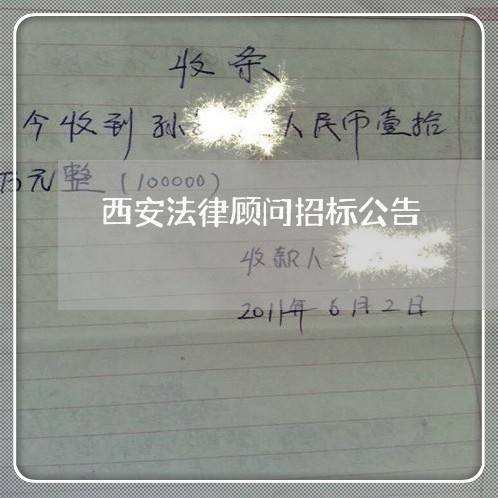 收条
今收到孙 人民币壹拾
万元整(100000)
西安法律顾问招标公告
收款人
2011年6月2日